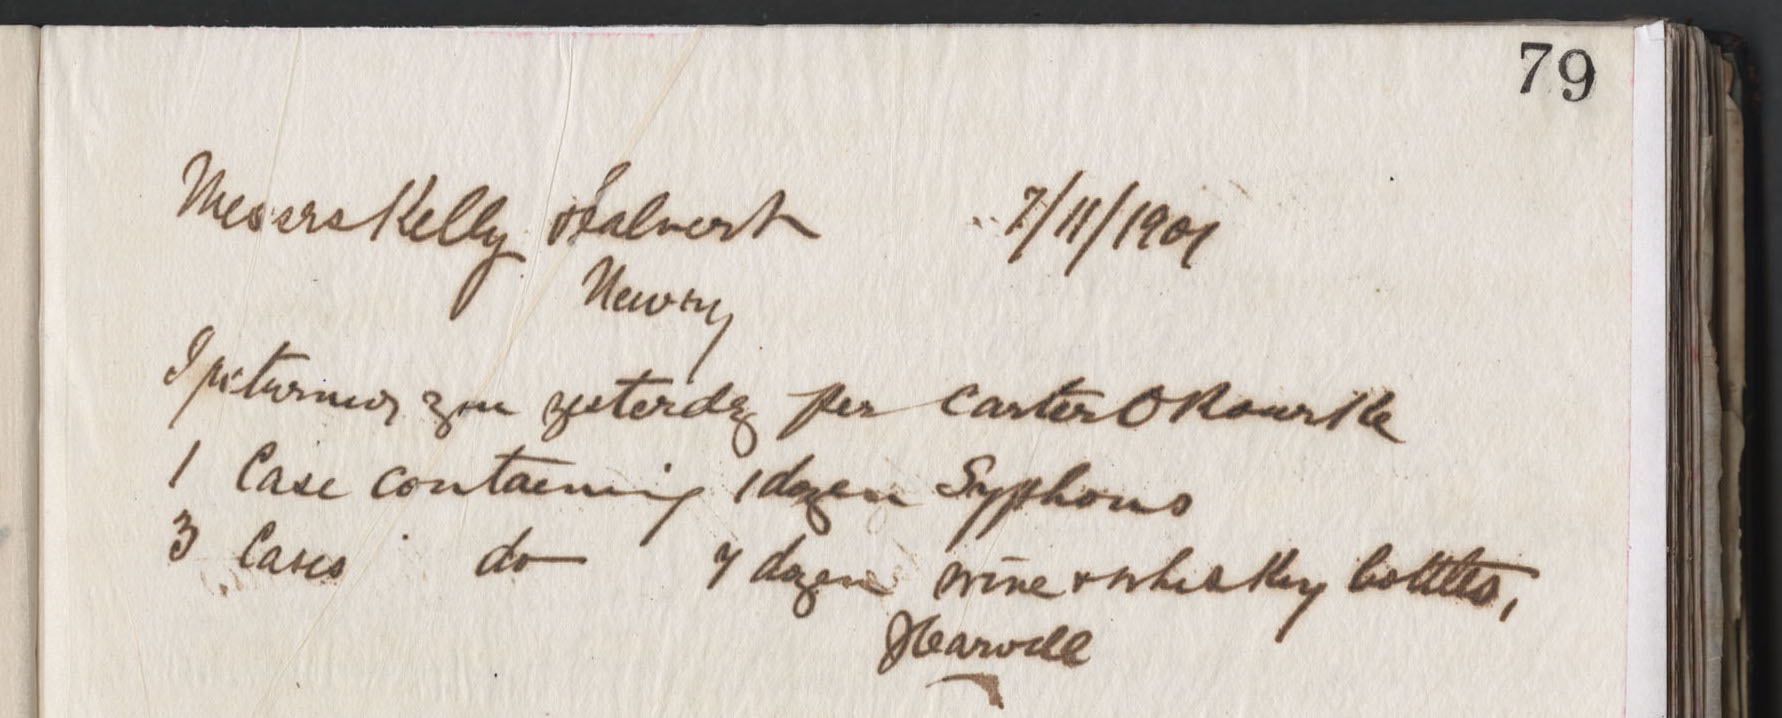 79
Messrs Kelly & 7/11/1901
Newry
I returned you yesterdy per Carter O Rourke
1 Case containing 1 dozen Syphons
3 Cases do 7 dozen wine & whiskey bottles,